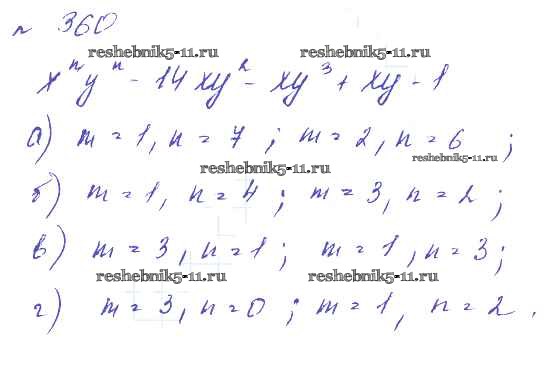 № 360
reshebnik5-11.ru reshebnik5-11.ru
xⁿyⁿ - 14xy² - xy³ + xy - 1
а) m = 1, n = 7 ; m = 2, n = 6 ;
reshebnik5-11.ru
reshebnik5-11.ru
б) m = 1, n = 4 ; m = 3, n = 2 ;
в) m = 3, n = 1 ; m = 1, n = 3 ;
reshebnik5-11.ru reshebnik5-11.ru
г) m = 3, n = 0 ; m = 1, n = 2 .